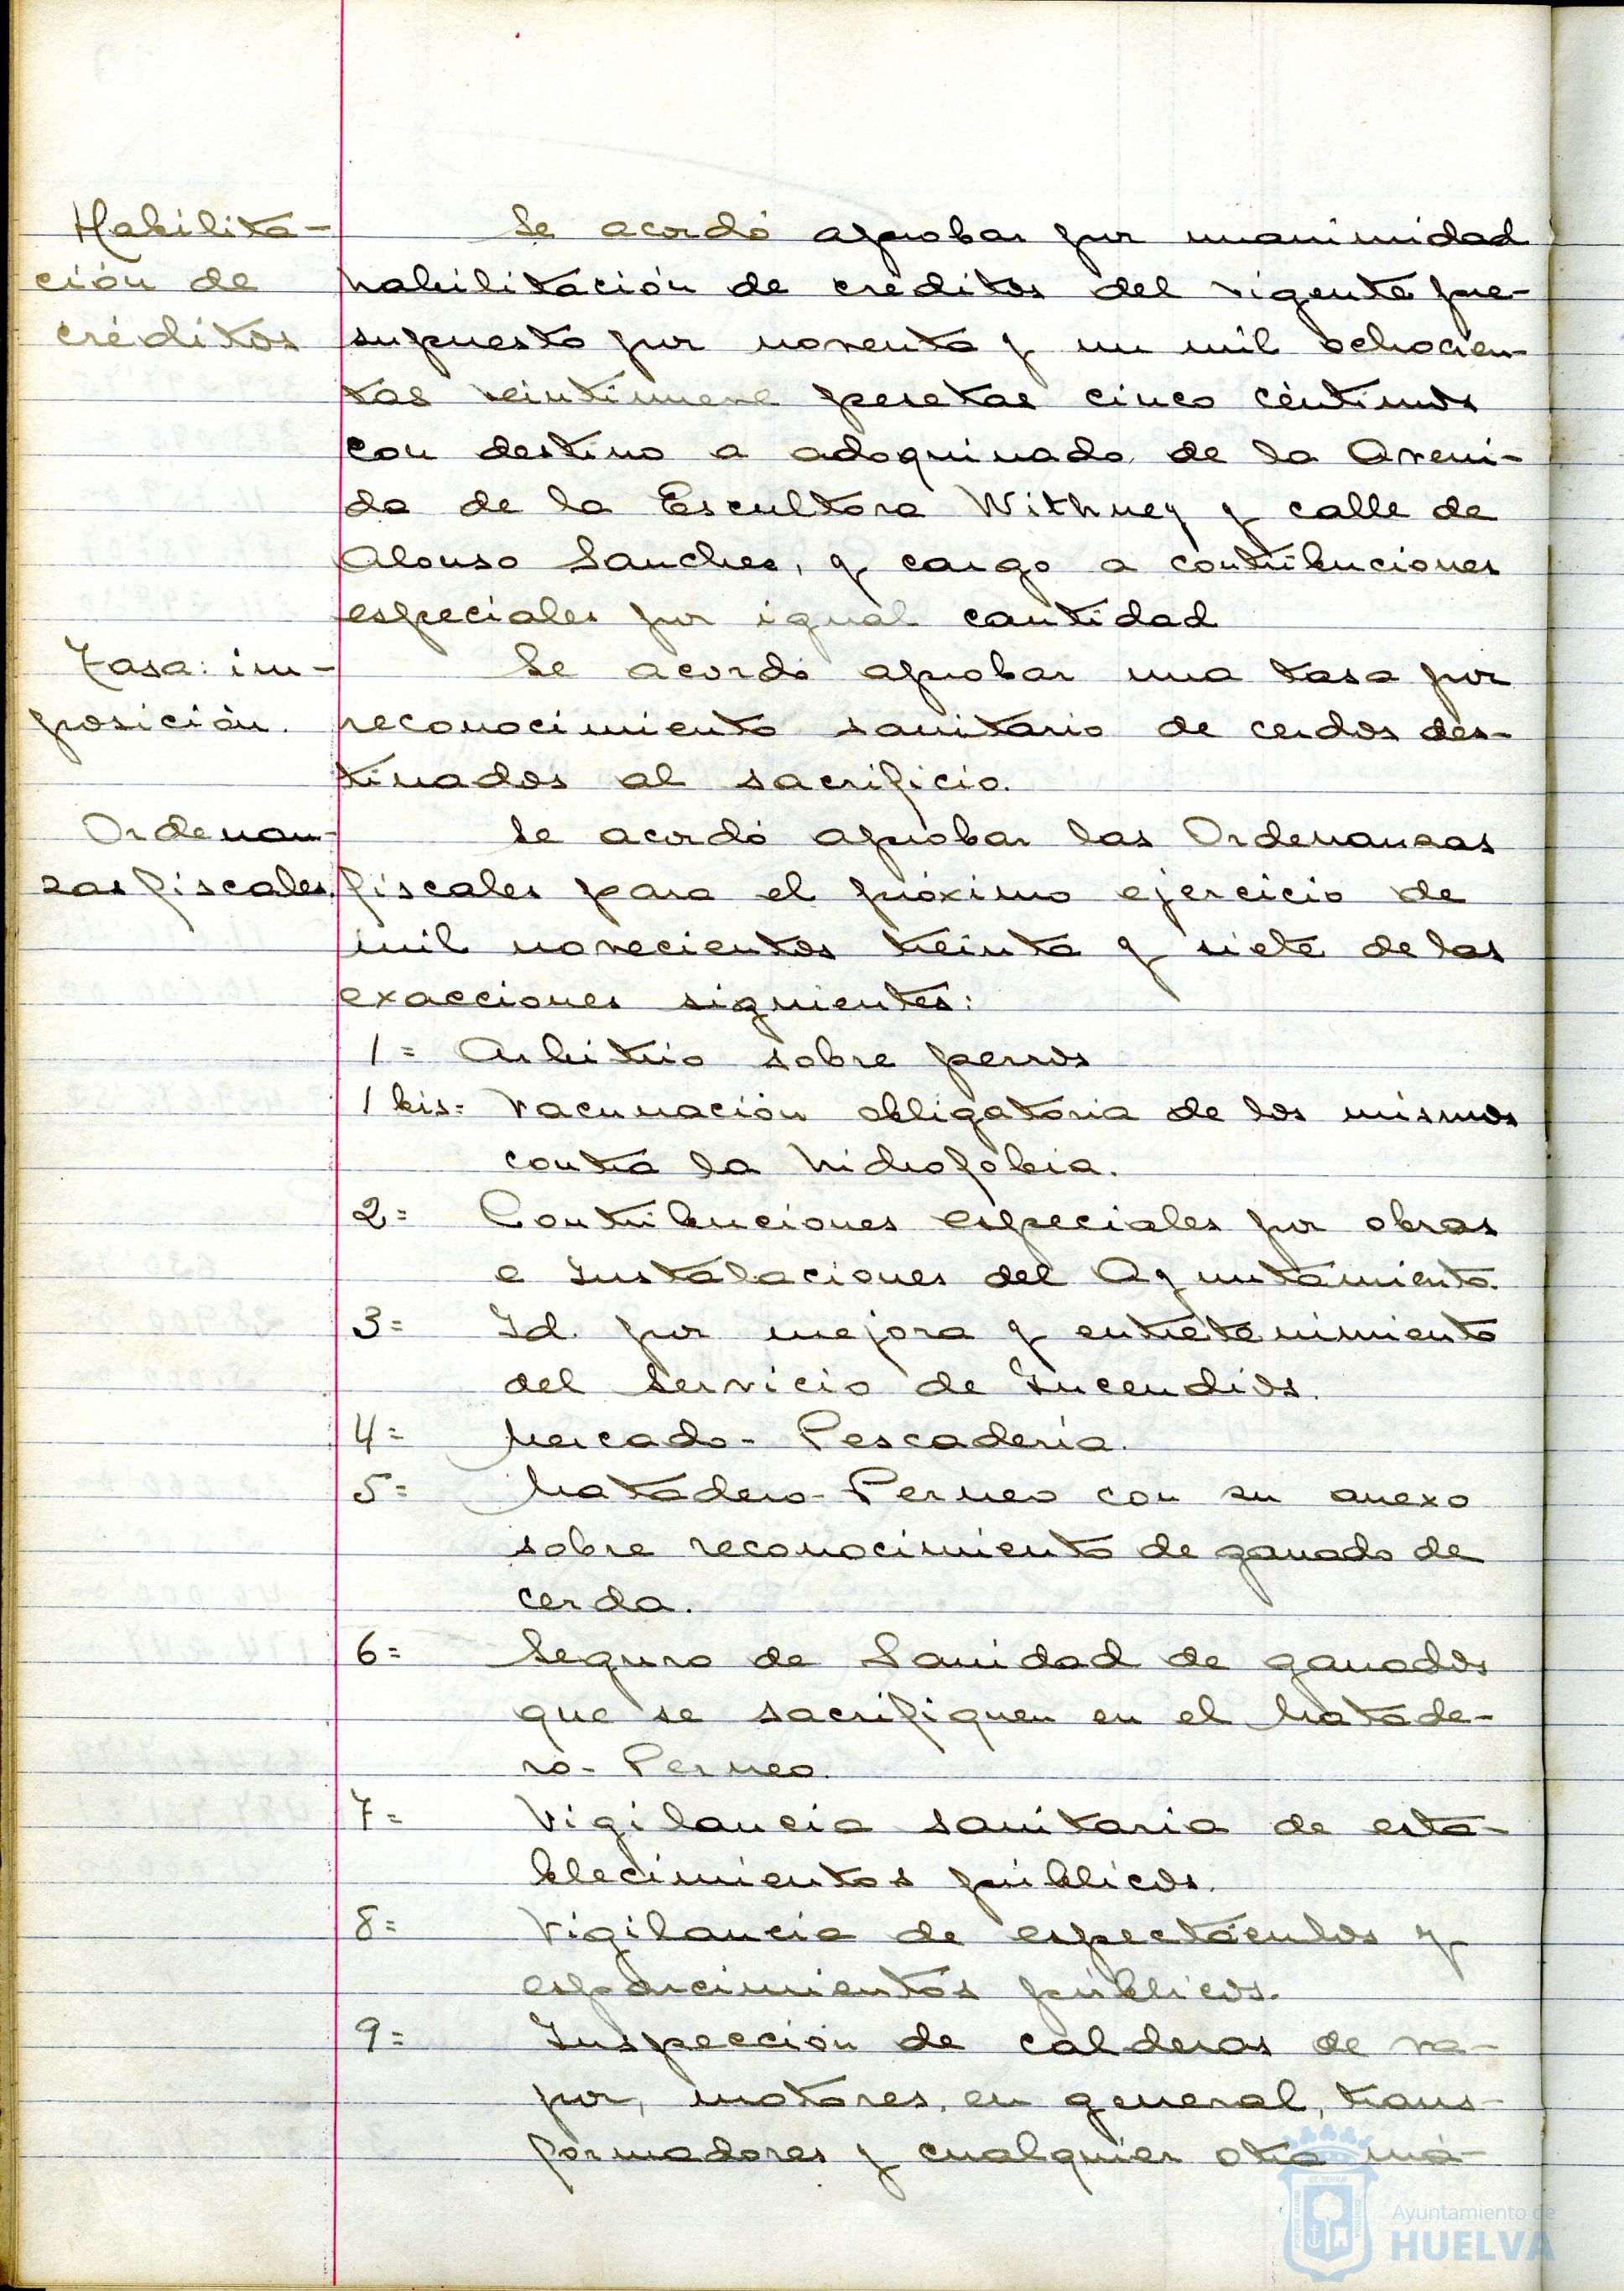 Habilita-
ción de
créditos
Se acordó aprobar por unanimidad
habilitación de créditos del vigente pre-
supuesto por noventa y un mil ochocien-
tas veintinueve pesetas cinco céntimos
con destino a adoquinado de la Aveni-
da de la Escultora Withney y calle de
Alonso Sanchez, y cargo a contribuciones
especiales por igual cantidad
Tasa: im-
posición.
Se acordó aprobar una tasa por
reconocimiento sanitario de cerdos des-
tinados al sacrificio.
Ordenan-
zas fiscales.
Se acordó aprobar las Ordenanzas
fiscales para el próximo ejercicio de
mil novecientos treinta y siete de las
exacciones siguientes:
1= Arbitrio sobre perros
1 bis= Vacunación obligatoria de los mismos
contra la hidrofobia.
2= Contribuciones especiales por obras
e Instalaciones del Ayuntamiento.
3= Id. por mejora y entretenimiento
del Servicio de Incendios.
4= Mercado- Pescadería.
5= Matadero- Perneo con su anexo
sobre reconocimiento de ganado de
cerda.
6= Seguro de Sanidad de ganados
que se sacrifiquen en el Matade-
ro- Perneo.
7= Vigilancia sanitaria de esta-
blecimientos públicos.
8= Vigilancia de espectáculos y
esparcimientos públicos.
9= Inspección de calderas de va-
por, motores, en general, trans-
formadores y cualquier otra má-
Ayuntamiento de
HUELVA